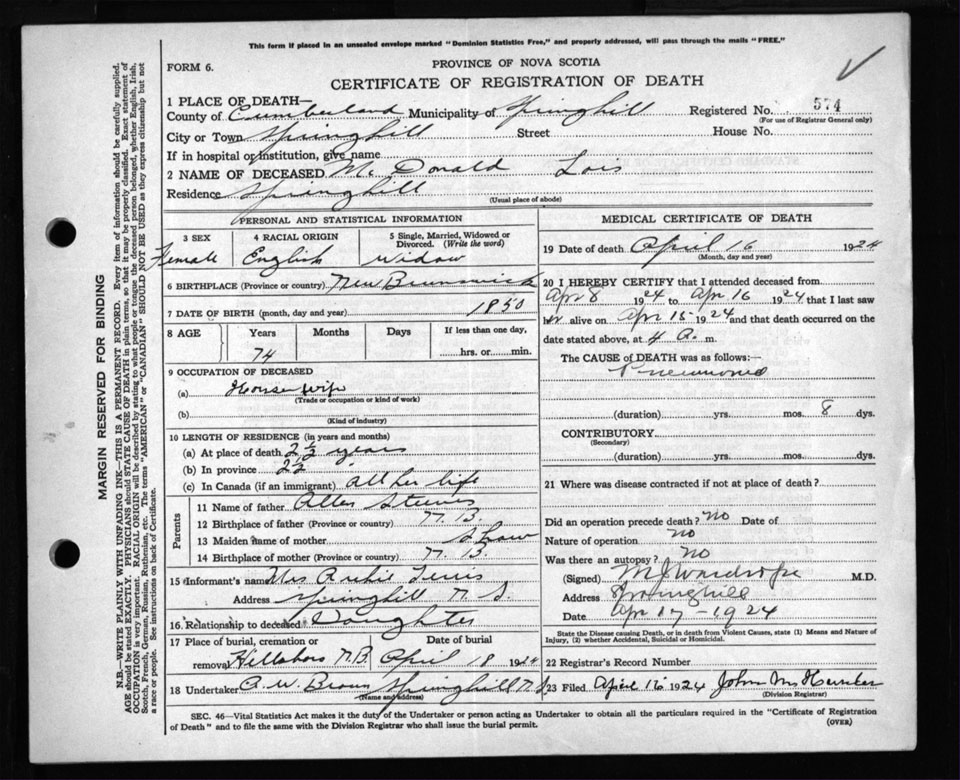 This form if placed in an unsealed envelope marked "Dominion Statistics Free," and properly addressed, will pass through the mails "FREE."
FORM 6.
PROVINCE OF NOVA SCOTIA
CERTIFICATE OF REGISTRATION OF DEATH
1 PLACE OF DEATH—
County of Cumberland Municipality of Springhill Registered No. 574
(For use of Registrar General only)
City or Town Springhill Street House No.
If in hospital or institution, give name
2 NAME OF DECEASED Mc Donald Lois
Residence Springhill
(Usual place of abode)
PERSONAL AND STATISTICAL INFORMATION
3 SEX 4 RACIAL ORIGIN 5 Single, Married, Widowed or Divorced. (Write the word)
Female English Widow
6 BIRTHPLACE (Province or country) New Brunswick
7 DATE OF BIRTH (month, day and year) 1850
8 AGE Years Months Days If less than one day,
74 hrs. or min.
9 OCCUPATION OF DECEASED
(a) House Wife
(Trade or occupation or kind of work)
(b)
(Kind of industry)
10 LENGTH OF RESIDENCE (in years and months)
(a) At place of death years
(b) In province 22
(c) In Canada (if an immigrant) all her life
Parents
11 Name of father Allen Steeves
12 Birthplace of father (Province or country) N.B.
13 Maiden name of mother Shaw
14 Birthplace of mother (Province or country) N.B.
15 Informant's name Mrs Archie
Address Springhill N.S.
16 Relationship to deceased Daughter
17 Place of burial, cremation or removal Hillsboro N.B. Date of burial April 18 1924
18 Undertaker A.W. Brown Springhill N.S.
(Name and address)
MEDICAL CERTIFICATE OF DEATH
19 Date of death April 16 1924
(Month, day and year)
20 I HEREBY CERTIFY that I attended deceased from
Apr 8 1924 to Apr 16 1924 that I last saw
her alive on Apr 15 1924 and that death occurred on the
date stated above, at 4 A. m.
The CAUSE of DEATH was as follows:—
Pneumonia
(duration) yrs. mos. 8 dys.
CONTRIBUTORY
(Secondary)
(duration) yrs. mos. dys.
21 Where was disease contracted if not at place of death?
Did an operation precede death? No Date of
Nature of operation No
Was there an autopsy? No
(Signed) M J Wardrope M.D.
Address Springhill
Date Apr 17 - 1924
State the Disease causing Death, or in death from Violent Causes, state (1) Means and Nature of Injury, (2) whether Accidental, Suicidal or Homicidal.
22 Registrar's Record Number
23 Filed April 1924 John
(Division Registrar)
SEC. 46—Vital Statistics Act makes it the duty of the Undertaker or person acting as Undertaker to obtain all the particulars required in the "Certificate of Registration
of Death" and to file the same with the Division Registrar who shall issue the burial permit.
(OVER)
MARGIN RESERVED FOR BINDING
N.B.—WRITE PLAINLY WITH UNFADING INK—THIS IS A PERMANENT RECORD. Every item of information should be carefully supplied.
AGE should be stated EXACTLY. PHYSICIANS should STATE CAUSE OF DEATH in plain terms, so that it may be properly classified. Exact statement of
OCCUPATION is very important. RACIAL ORIGIN will be described by stating to what people or tongue the deceased person belonged, whether English, Irish,
Scotch, French, German, Russian, Ruthenian, etc. The terms "AMERICAN" or "CANADIAN" SHOULD NOT BE USED as they express citizenship but not
a race or people. See instructions on back of Certificate.